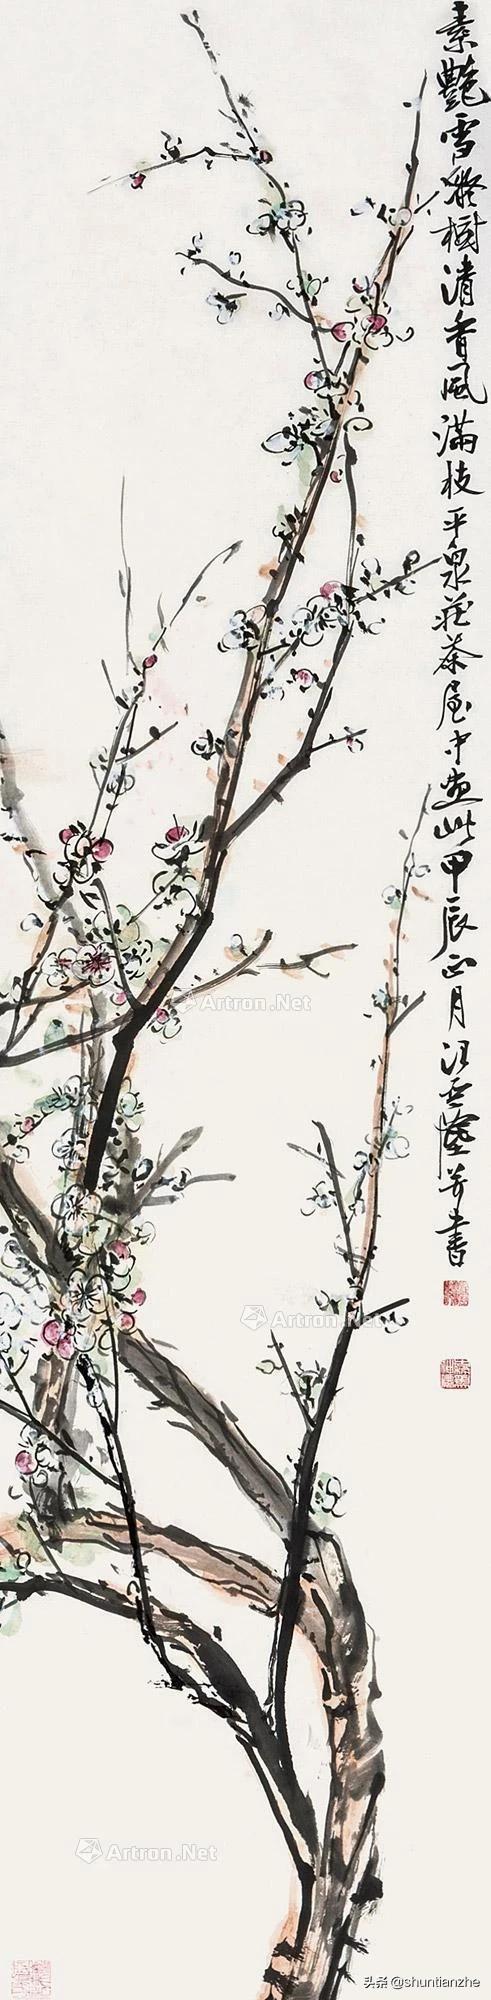 素艷雪凝樹清香風滿枝平泉莊茶屋中畫此甲辰正月並書
Artron.Net
Artron.Net
Artron.Net
头条 @shuntianzhe